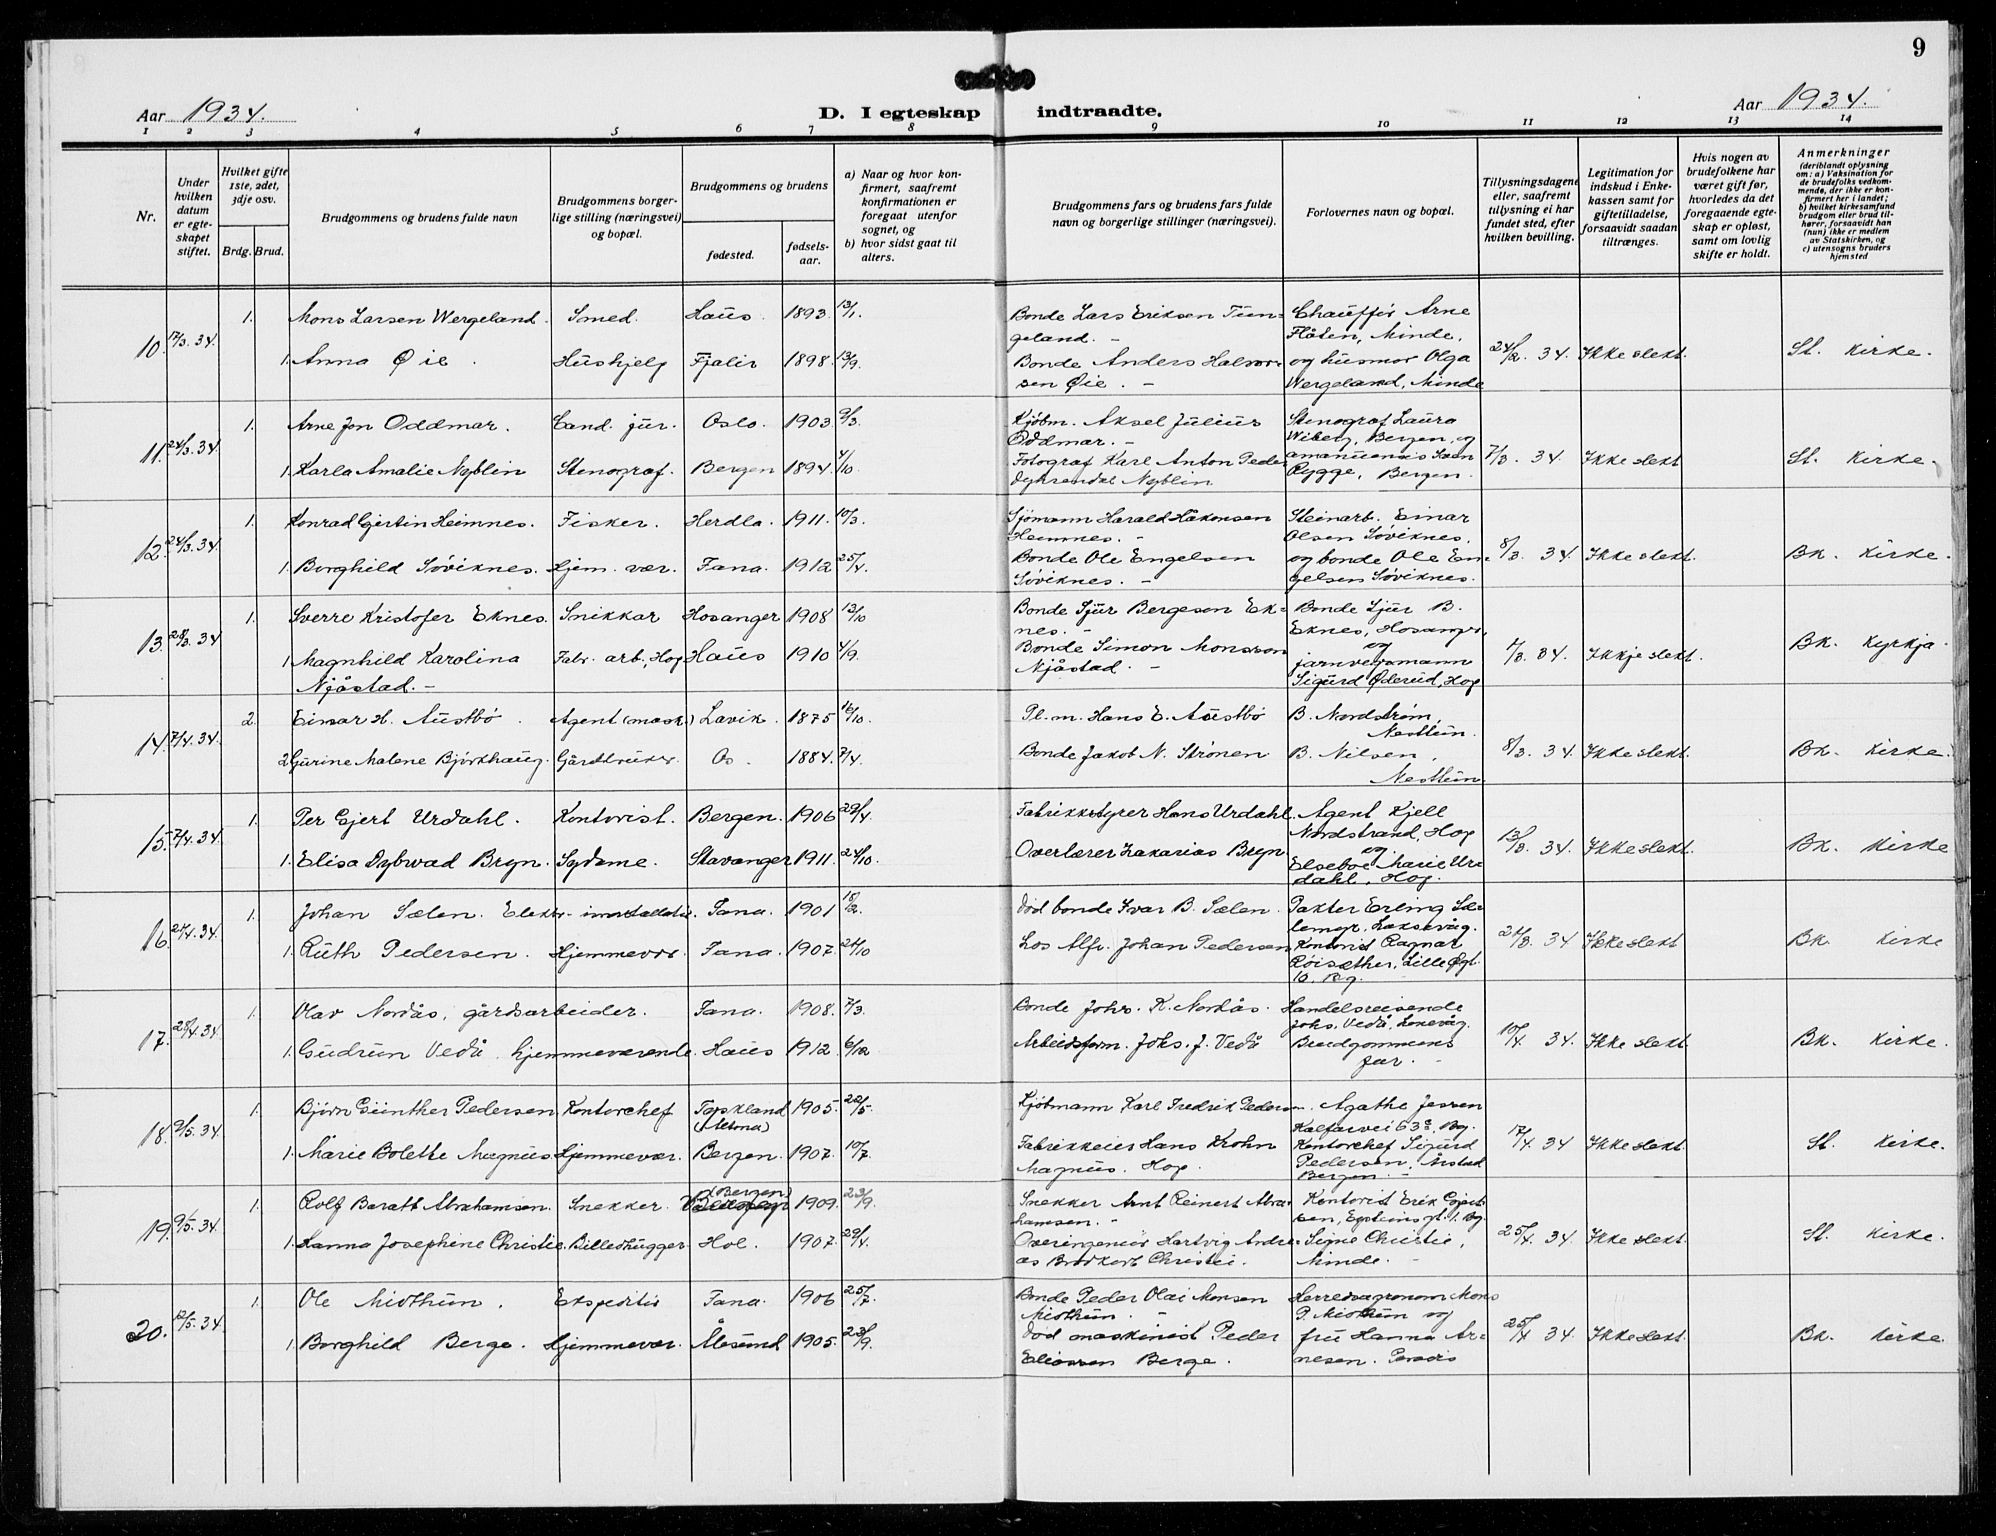 9
Aar 1934.
D. I egteskap indtraadte.
Aar 1934.
1 2 3 4 5 6 7 8 9 10 11 12 13 14
Nr.
Under hvilken datum er egteskapet stiftet.
Hvilket gifte 1ste, 2det, 3dje osv.
Brdg. Brud.
Brudgommens og brudens fulde navn
Brudgommens borgerlige stilling (næringsvei) og bopæl.
Brudgommens og brudens
fødested.
fødselsaar.
a) Naar og hvor konfirmert, saafremt konfirmationen er foregaat utenfor sognet, og
b) hvor sidst gaat til alters.
Brudgommens fars og brudens fars fulde navn og borgerlige stillinger (næringsvei).
Forlovernes navn og bopæl.
Tillysningsdagene eller, saafremt tillysning ei har fundet sted, efter hvilken bevilling.
Legitimation for indskud i Enkekassen samt for giftetilladelse, forsaavidt saadan tiltrænges.
Hvis nogen av brudefolkene har været gift før, hvorledes da det foregaaende egteskap er opløst, samt om lovlig skifte er holdt.
Anmerkninger
(deriblandt oplysning om: a) Vaksination for de brudefolks vedkommende, der ikke er konfirmert her i landet; b) hvilket kirkesamfund brudgom eller brud tilhører, forsaavidt han (hun) ikke er medlem av Statskirken, og c) utensogns bruders hjemsted
10. 17/3.34. 1. Mons Larsen Wergeland. Smed. Haus. 1893. 13/1. Bonde Lars Eriksen Tungeland. - Chauffør Arne Flåten, Minde,
1. Anna Øie. Hushjelp Fjaler 1898. 13/9. Bonde Anders Halvorsen Øie. - og husmor Olga Wergeland, Minde 24/2. 34. Ikke slekt. St. kirke.
11. 24/3.34. 1. Arne Jon Oddmar. Cand. jur. Oslo. 1903. 9/3. Kjøbm. Aksel Julius Oddmar. - Stenograf Laura Wiberg, Bergen, og
1. Karla Amalie Nyblin Stenograf. Bergen 1894. 4/10 Fotograf Karl Anton Peder Dyhrendal Nyblin amanuensis Sven Rygge, Bergen. 7/3. 34. Ikke slekt St. kirke.
12. 24/3.34. 1. Konrad Gjertin Heimnes. Fisker. Herdla. 1911. 10/3. Sjømann Harald Håkonsen Heimnes. - Steinarb. Einar Olsen Søviknes,
1. Borghild Søviknes. Hjem. vær. Fana. 1912 25/4. Bonde Ole Engelsen Søviknes. - og bonde Ole Engelsen Søviknes. 8/3. 34. Ikke slekt. Bk. kirke.
13. 28/3.34 1. Sverre Kristofer Eknes. Snikkar Hosanger 1908 13/10 Bonde Sjur Bergesen Eknes. - Bonde Sjur B. Eknes, Hosanger, og
1. Magnhild Karolina Njåstad. - Fabr. arb., Hop Haus 1910 4/9. Bonde Simon Monsson Njåstad. - jarnvegsmann Sigurd Øderud, Hop 7/3. 34. Ikkje slekt. Bk. kyrkja.
14. 7/4.34. 2. Einar H. Austbø. Agent (mask.) Lavik. 1875 16/10. Pl.m. Hans E. Austbø B. Nordstrøm, Nesttun.
2. Gurine Malene Bjørkhaug. Gårdbruker. Os. 1884. 7/4. Bonde Jakob N. Strønen B. Nilsen, Nesttun. 8/3. 34. Ikke slekt. Bk. kirke.
15. 7/4.34 1. Per Gjert Urdahl. Kontorist. Bergen. 1906 29/4 Fabrikkstyrer Hans Urdahl. Agent Kjell Nordstrand, Hop og
1. Elisa Dybwad Bryn. Sydame. Stavanger 1911. 24/10 Overlærer Zakarias Bryn Elseboe Marie Urdahl, Hop. 13/3. 34. Ikke slekt. Bk. kirke
16. 21/4.34. 1. Johan Sælen. Elektr. installatør. Fana. 1901 Død bonde Ivar B. Sælen.
1. Ruth Pedersen. Hjemmevær. Fana. 1907. 21/10 Los Alfr. Johan Pedersen Kontorist Ragnar Røisæther, Lille Øgt. 10. Bg. 21/3. 34 Ikke slekt Bk. kirke
17. 28/4.34 1. Olav Nordås, gårdsarbeider. Fana. 1908. 7/3. Bonde Johs. K. Nordås. Handelsreisende Johs. Vedå,
1. Gudrun Vedå hjemmeværende. Haus 1912. 6/12 Arbeidsform. Johs. J. Vedå Brudgommens far. - 10/4. 34. Ikke slekt Bk. kirke.
18. 9/5.34. 1. Bjørn Günther Pedersen Kontorchef Tyskland (Altona) 1905. 22/5. Kjøbmann Karl Fredrik Pedersen. Agathe Jessen Kalfarvei 63ª. Bg.
1. Marie Bolette Magnus Hjemmevær. Bergen. 1907. 10/7. Fabrikkeier Hans Krohn Magnus. Hop. Kontorchef Sigurd Pedersen, Årstad Bergen. - 17/4. 34 Ikke slekt. St. kirke.
19. 9/5.34. 1. Rolf Baratt Abrahamsen. Snekker. (Bergen) 1909. 23/9. Snekker Arnt Reinert Abrahamsen. - Kontorist Erik
1. Hanna Josephine Christie. Billedhugger. Hol. 1907. 29/4. Overingeniør Hartvig Andreas Christie. Signe Christie, Minde. - 25/4. 34. Ikke slekt. St. kirke.
20. 12/5.34. 1. Ole Midthun. Ekspeditør Fana. 1906 25/7. Bonde Peder Olai Monsen Midthun. - Herredsagronom Mons P. Midthun og
1. Borghild Berge. Hjemmevær. Ålesund 1905. 23/9. Død maskinist Peder Eliassen Berge. fru Hanna Arnesen. Paradis 25/4 34. Ikke slekt. Bk. kirke.